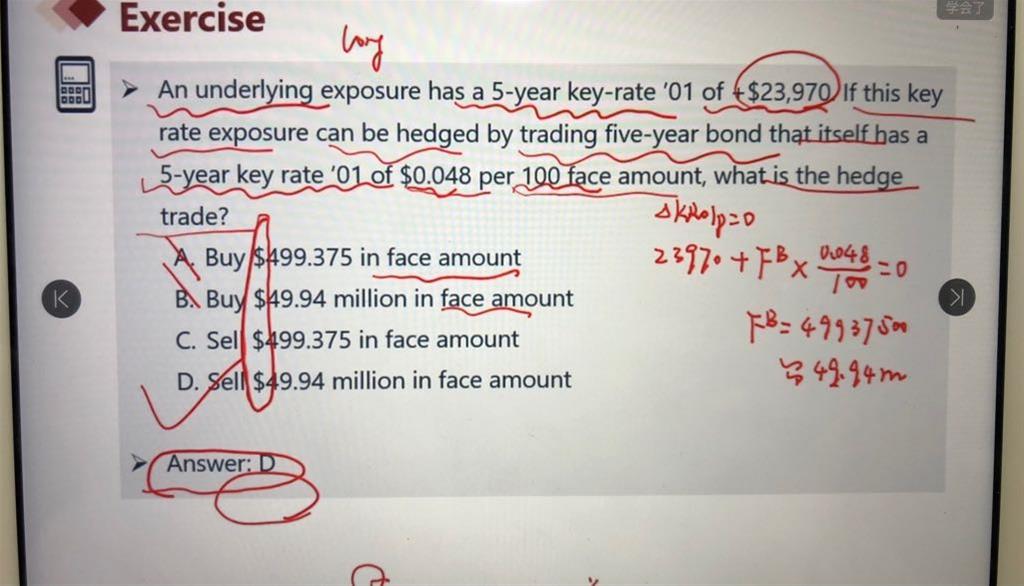 学会了
Exercise
long
➤ An underlying exposure has a 5-year key-rate '01 of +$23,970. If this key
rate exposure can be hedged by trading five-year bond that itself has a
5-year key rate '01 of $0.048 per 100 face amount, what is the hedge
trade?
A. Buy $499.375 in face amount
B. Buy $49.94 million in face amount
C. Sell $499.375 in face amount
D. Sell $49.94 million in face amount
ΔKR01p=0
23970 + F^B × 0.048/100 = 0
F^B = 49937500
49.94m
➤ Answer: D